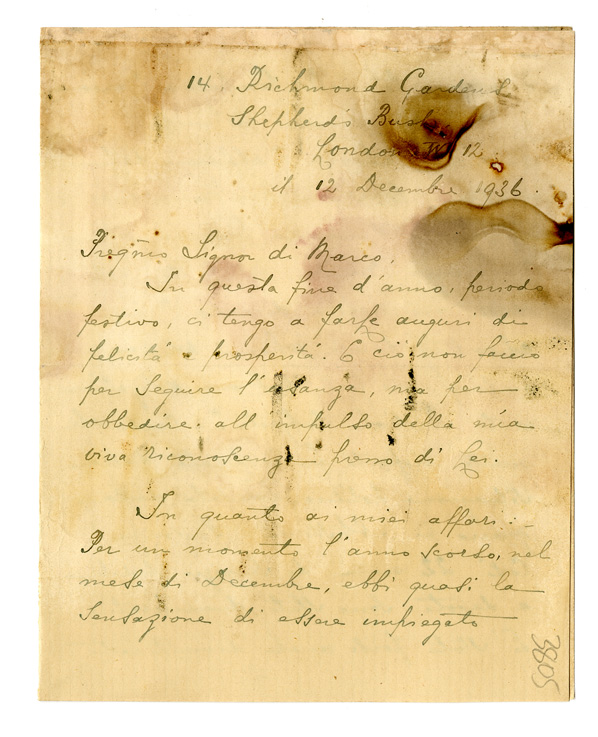 14. Richmond Gardens
Shepherd's Bush
London W 12
il 12 Decembre 1936.
Pregmo Signor di Marco,
In questa fine d'anno, periodo
festivo, ci tengo a farle auguri di
felicità e prosperità. E ciò non faccio
per seguire l'usanza, ma per
obbedire all impulso della mia
viva riconoscenza presso di Lei.
In quanto ai miei affari: -
Per un momento l'anno scorso, nel
mese di Decembre, ebbi quasi la
sensazione di essere impiegato